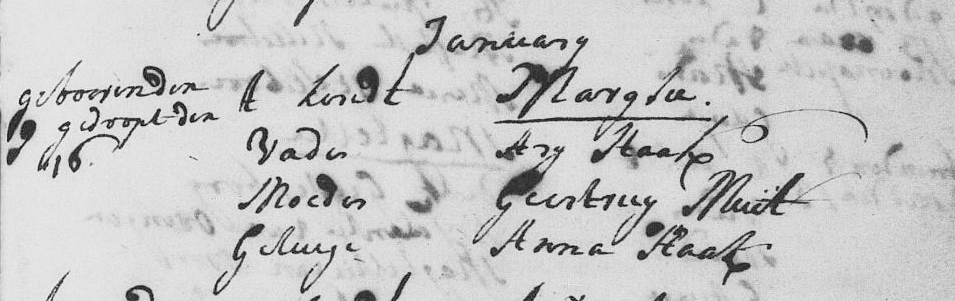 January
gebooren den 9 gedoopt den 16
't kindt Margje.
Vader Ary Haak
Moeder Geertruy Muit
Getuige Anna Haak